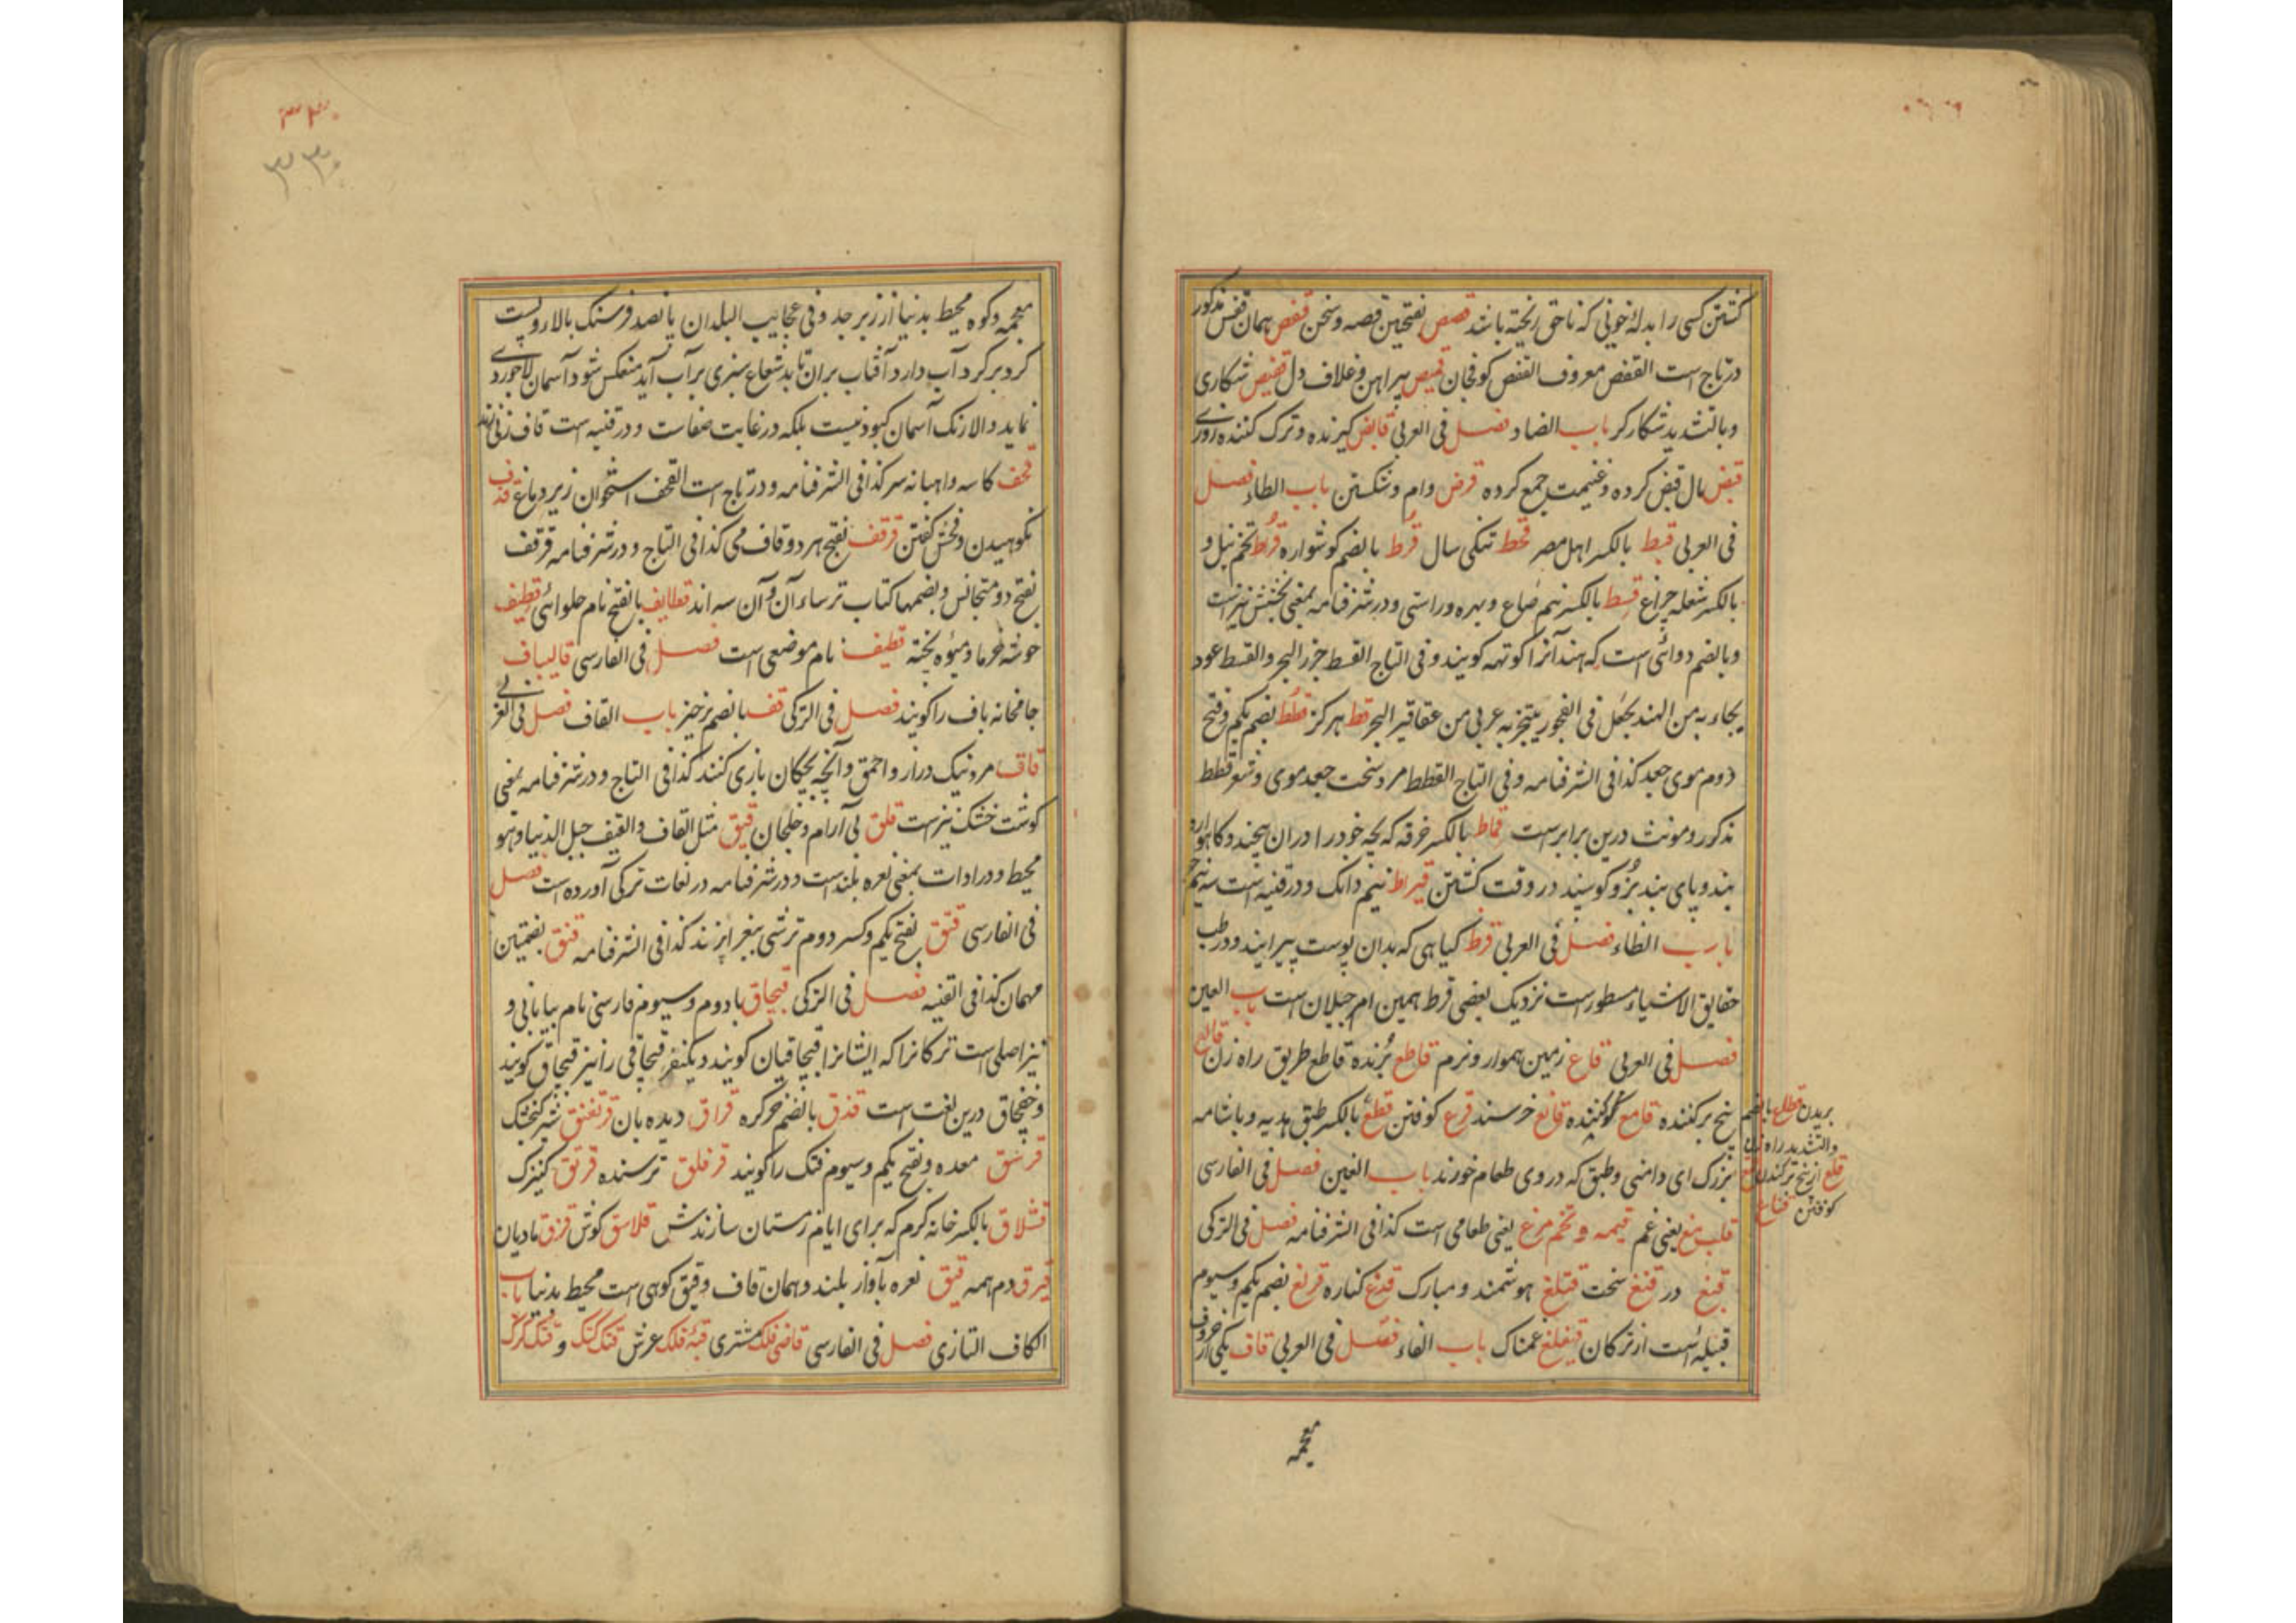 کشتن کسی را بدلهٔ خونی که ناحق ریخته باشد قصص بفتحتین قصه و سخن قفص همان قفس مذکور
در تاج است القفص معروف القفص کوفجان قمیص پیراهن و غلاف دل قنیص شکاری
و بالتشدید شکار کر باب الضاد فصل فی العربی قابض کیرنده و ترک کننده روزی
قبض مال قبض کرده و غنیمت جمع کرده قرض وام و شکستن باب الطاء فصل
فی العربی قبط بالکسر اهل مصر قحط تنکی سال قُرط بالضم کوشواره قُراط تخم نیل و
بالکسر شعله چراغ قسط بالکسر نیم صاع و بهره و راستی و در شرفنامه بمعنی بخشش نیز است
و بالضم دوائی است که هند آنرا کوتهه کویند و فی التاج القسط جزر البحر و القسط عود
یجاء به من الهند یجعل فی البخور یتبخر به عربی من عقاقیر البحر قط هرکز قطط بضم یکم و فتح
دوم موی جعد کذا فی الشرفنامه و فی التاج القطط مرد سخت جعد موی و شعر قطط
مذکور و مونث درین برابرست قماط بالکسر خرقه که بچه خود را دران پیچند و کاهواره
بند و پای بند بُز و کوسپند در وقت کشتن قیراط نیم دانک و در قنیه است سه نیم جو
باب الظاء فصل فی العربی قرظ کیاهی که بدان پوست پیرایند و در طب
حقایق الاشیاء مسطور است نزدیک بعضی قرط همین ام جیلان است باب العین
فصل فی العربی قاع زمین هموار و نرم قاطع بُرنده قاطع طریق راه زن قالع
بیخ برکننده قامع کوبنده قانع خرسند قرع کوفتن قطع بالکسر طبق هدیه و باشامه
بزرک ای دامنی و طبق که در وی طعام خورند باب الغین فصل فی الفارسی
یعنی غم قیمه و تخم مرغ یعنی طعامی است کذا فی الشرفنامه فصل فی الترکی
قبغ در قنغ سخت قتلغ هوشمند و مبارک قدغ کناره قرلغ بضم یکم و سیوم
قبیله است از ترکان قیغلغ غمناک باب الفاء فصل فی العربی قاف یکی از حروف
بریدن قطاع بالضم
والتشدید راه زنان
قلع از بیخ برکندن قمع
کوفتن قناع
معجمه
۳۳۰
۳۳۰
معجمه و کوه محیط بدنیا از زبرجد و فی عجایب البلدان پانصد فرسنک بالا رویست
کرد بر کرد آب دارد آفتاب بران تابد شعاع سبزی بر آب آید منعکس شود آسمان لاجوردی
نماید والا رنک آسمان کبود نیست بلکه در غایت صفاست و در قنیه است قاف
قحف کاسه و اهیانه سر کذا فی الشرفنامه و در تاج است القحف استخوان زیر دماغ قذف
نکوهیدن و فحش کفتن قرقف بفتح هر دو قاف می کذا فی التاج و در شرفنامه قرقف
بفتح دو متجانس و بضمها کتاب ترساء آن و آن سه اند قطایف بالفتح نام حلوائی قطیف
خوشه خرما و میوه پخته قطیف نام موضعی است فصل فی الفارسی قالیباف
جامخانه باف را کویند فصل فی الترکی قف بالضم برخیز باب القاف فصل فی العربی
قاق مرد نیک دراز و احمق و آنچه بچکان بازی کنند کذا فی التاج و در شرفنامه بمعنی
کوشت خشک نیز است قلق بی آرام و خلجان قیق مثل القاف والقیف جبل الدنیا و هو
محیط و در ادات بمعنی نعره بلند است و در شرفنامه در لغات ترکی آورده است فصل
فی الفارسی قتق بفتح یکم و کسر دوم ترشی ببغرا ریزند کذا فی الشرفنامه قنق بضمتین
مهمان کذا فی القنیه فصل فی الترکی قبچاق با دوم و سیوم فارسی نام بیابانی و
نیز اصلی است ترکانرا که ایشانرا قبچاقیان کویند و یکنفر قبچاقی را نیز قبچاق کویند
و خفچاق درین لغت است قذق بالضم خر کره قراق دیده بان قرتغنق شیر کنجشک
قرسق معده و بفتح یکم و سیوم فتک را کویند قرقلق ترسنده قرنق کنیزک
قشلاق بالکسر خانه کرم که برای ایام زمستان سازندش قلاسق کوش قزق مادیان
قیرق دم همه قیق نعره بآواز بلند و همان قاف و قیق کوهی است محیط بدنیا باب
الکاف التازی فصل فی الفارسی قاضی فلک مشتری قبهٔ فلک عرش